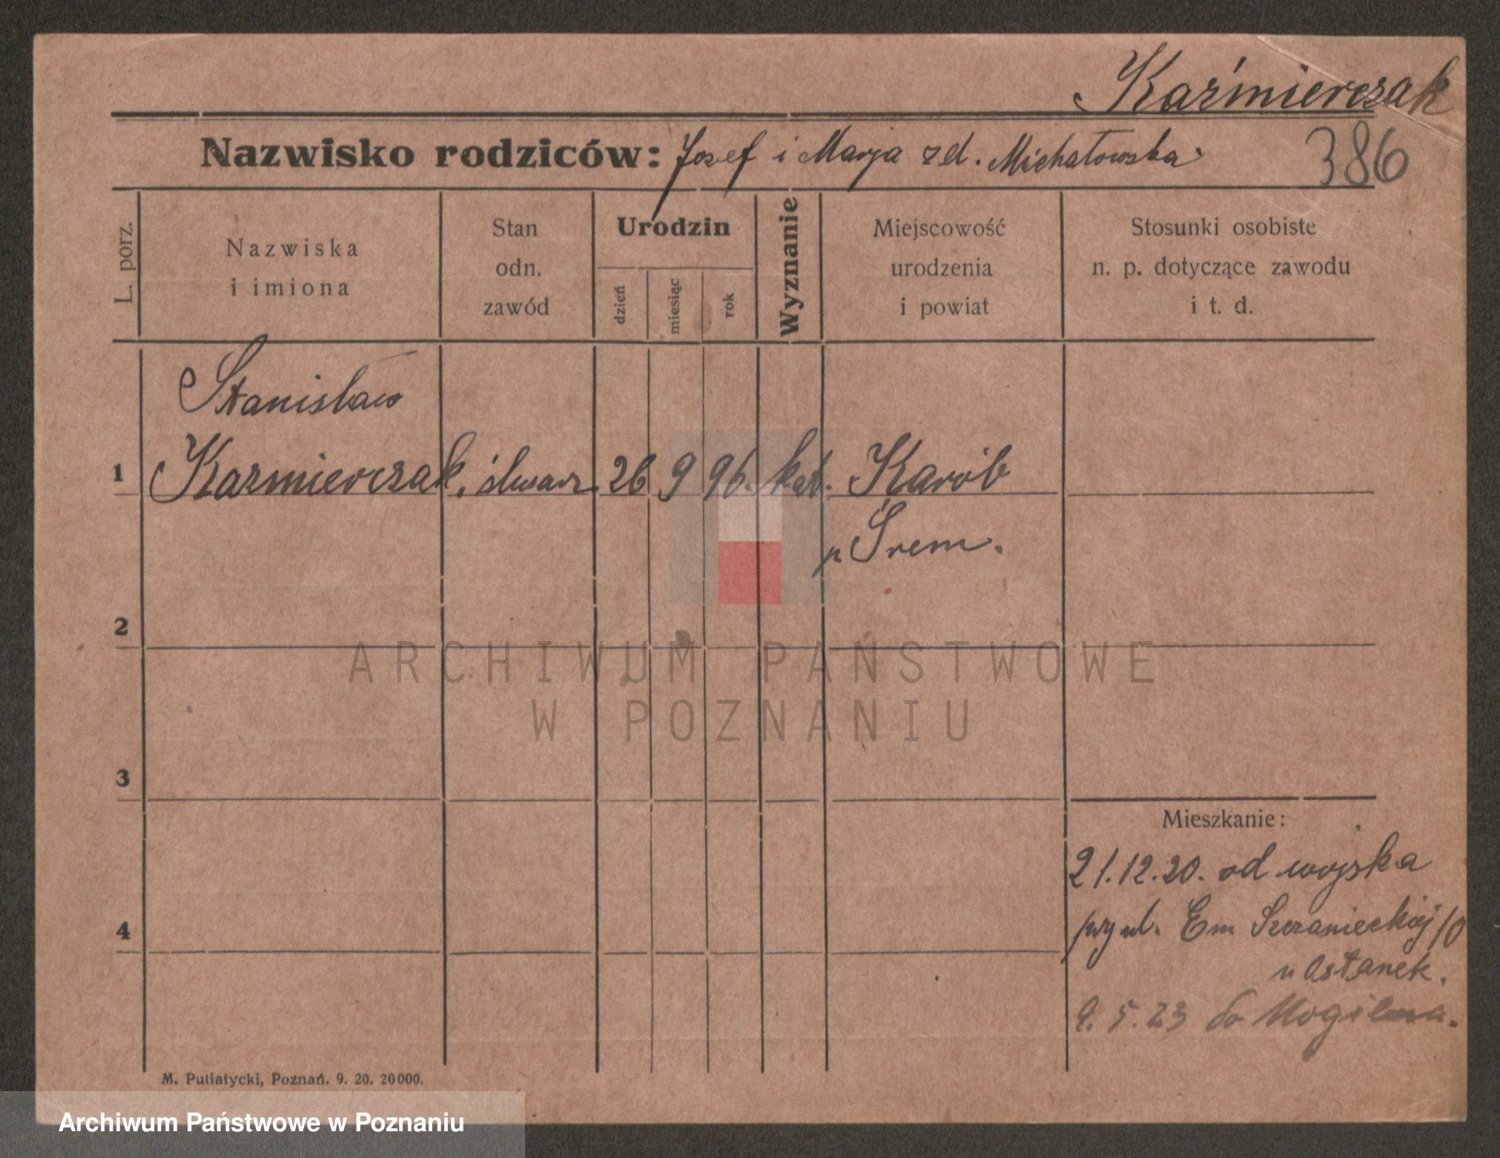 Kaźmierczak
Nazwisko rodziców: Jozef i Marja zd. Michałowska
386
L. porz.
Nazwiska
i imiona
Stan
odn.
zawód
Urodzin
dzień
miesiąc
rok
Wyznanie
Miejscowość
urodzenia
i powiat
Stosunki osobiste
n. p. dotyczące zawodu
i t. d.
Stanisław
1 Kaźmierczak, ślusarz. 26 9 96. kat. Karób
p Śrem.
2
ARCHIWUM PAŃSTWOWE
W POZNANIU
3
Mieszkanie:
21.12.20. od wojska
przy ul. Em Szczanieckiej 10
u Ostanek.
4
9.5.23 do Mogilna.
M. Putiatycki, Poznań. 9. 20. 20000.
Archiwum Państwowe w Poznaniu